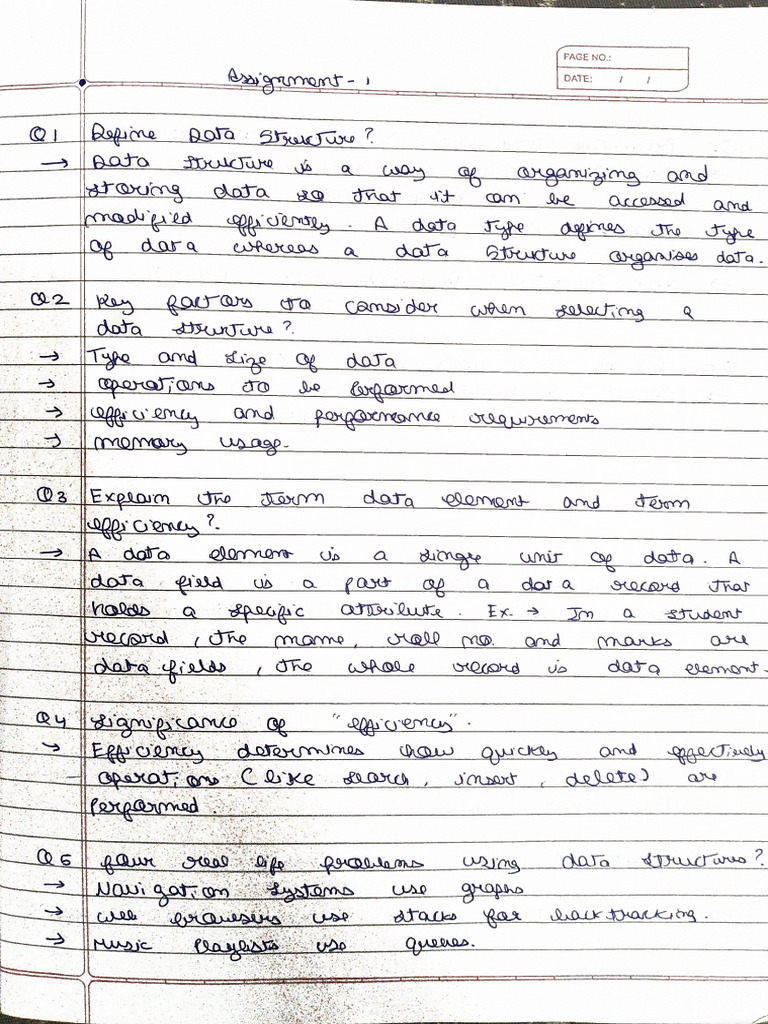 PAGE NO.:
DATE: / /
Assignment - 1
Q1 Define Data Structure?
→ Data structure is a way of organizing and
storing data so that it can be accessed and
modified efficiently. A data type defines the type
of data whereas a data structure organises data.
Q2 Key factors to consider when selecting a
data structure?
→ Type and size of data
→ operations to be performed
→ efficiency and performance requirements
→ memory usage.
Q3 Explain the term data element and term
efficiency?
→ A data element is a single unit of data. A
data field is a part of a data record that
holds a specific attribute. Ex. → In a student
record, the name, roll no. and marks are
data fields, the whole record is data element.
Q4 Significance of "efficiency".
→ Efficiency determines how quickly and effectively
operations (like search, insert, delete) are
performed.
Q5 four real life problems using data structures?
→ Navigation systems use graphs
→ web browsers use stacks for backtracking.
→ Music Playlists use queues.